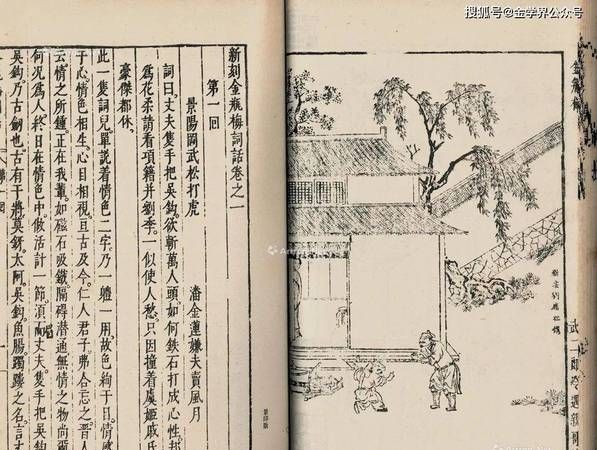 搜狐号@金学界公众号
金瓶梅
新安劉應祖鐫
武二郎冷遇親哥
新刻金瓶梅詞話卷之一
第一回
景陽岡武松打虎 潘金蓮嫌夫賣風月
詞曰丈夫隻手把吳鈎欲斬萬人頭如何鐵石打成心性却
爲花柔請看項籍并劉季一似使人愁只因撞着虞姬戚氏
豪傑都休
此一隻詞兒單說着情色二字乃一體一用故色絢于目情感
于心情色相生心目相視亘古及今仁人君子弗合忘之晉人
云情之所鍾正在我輩如磁石吸鐵隔碍潛通無情之物尚爾
何況爲人終日在情色中做活計一節須丈夫隻手把吳鈎
吳鈎乃古劍也古有干將莫鋣太阿吳鈎魚腸躅鏤之名言丈